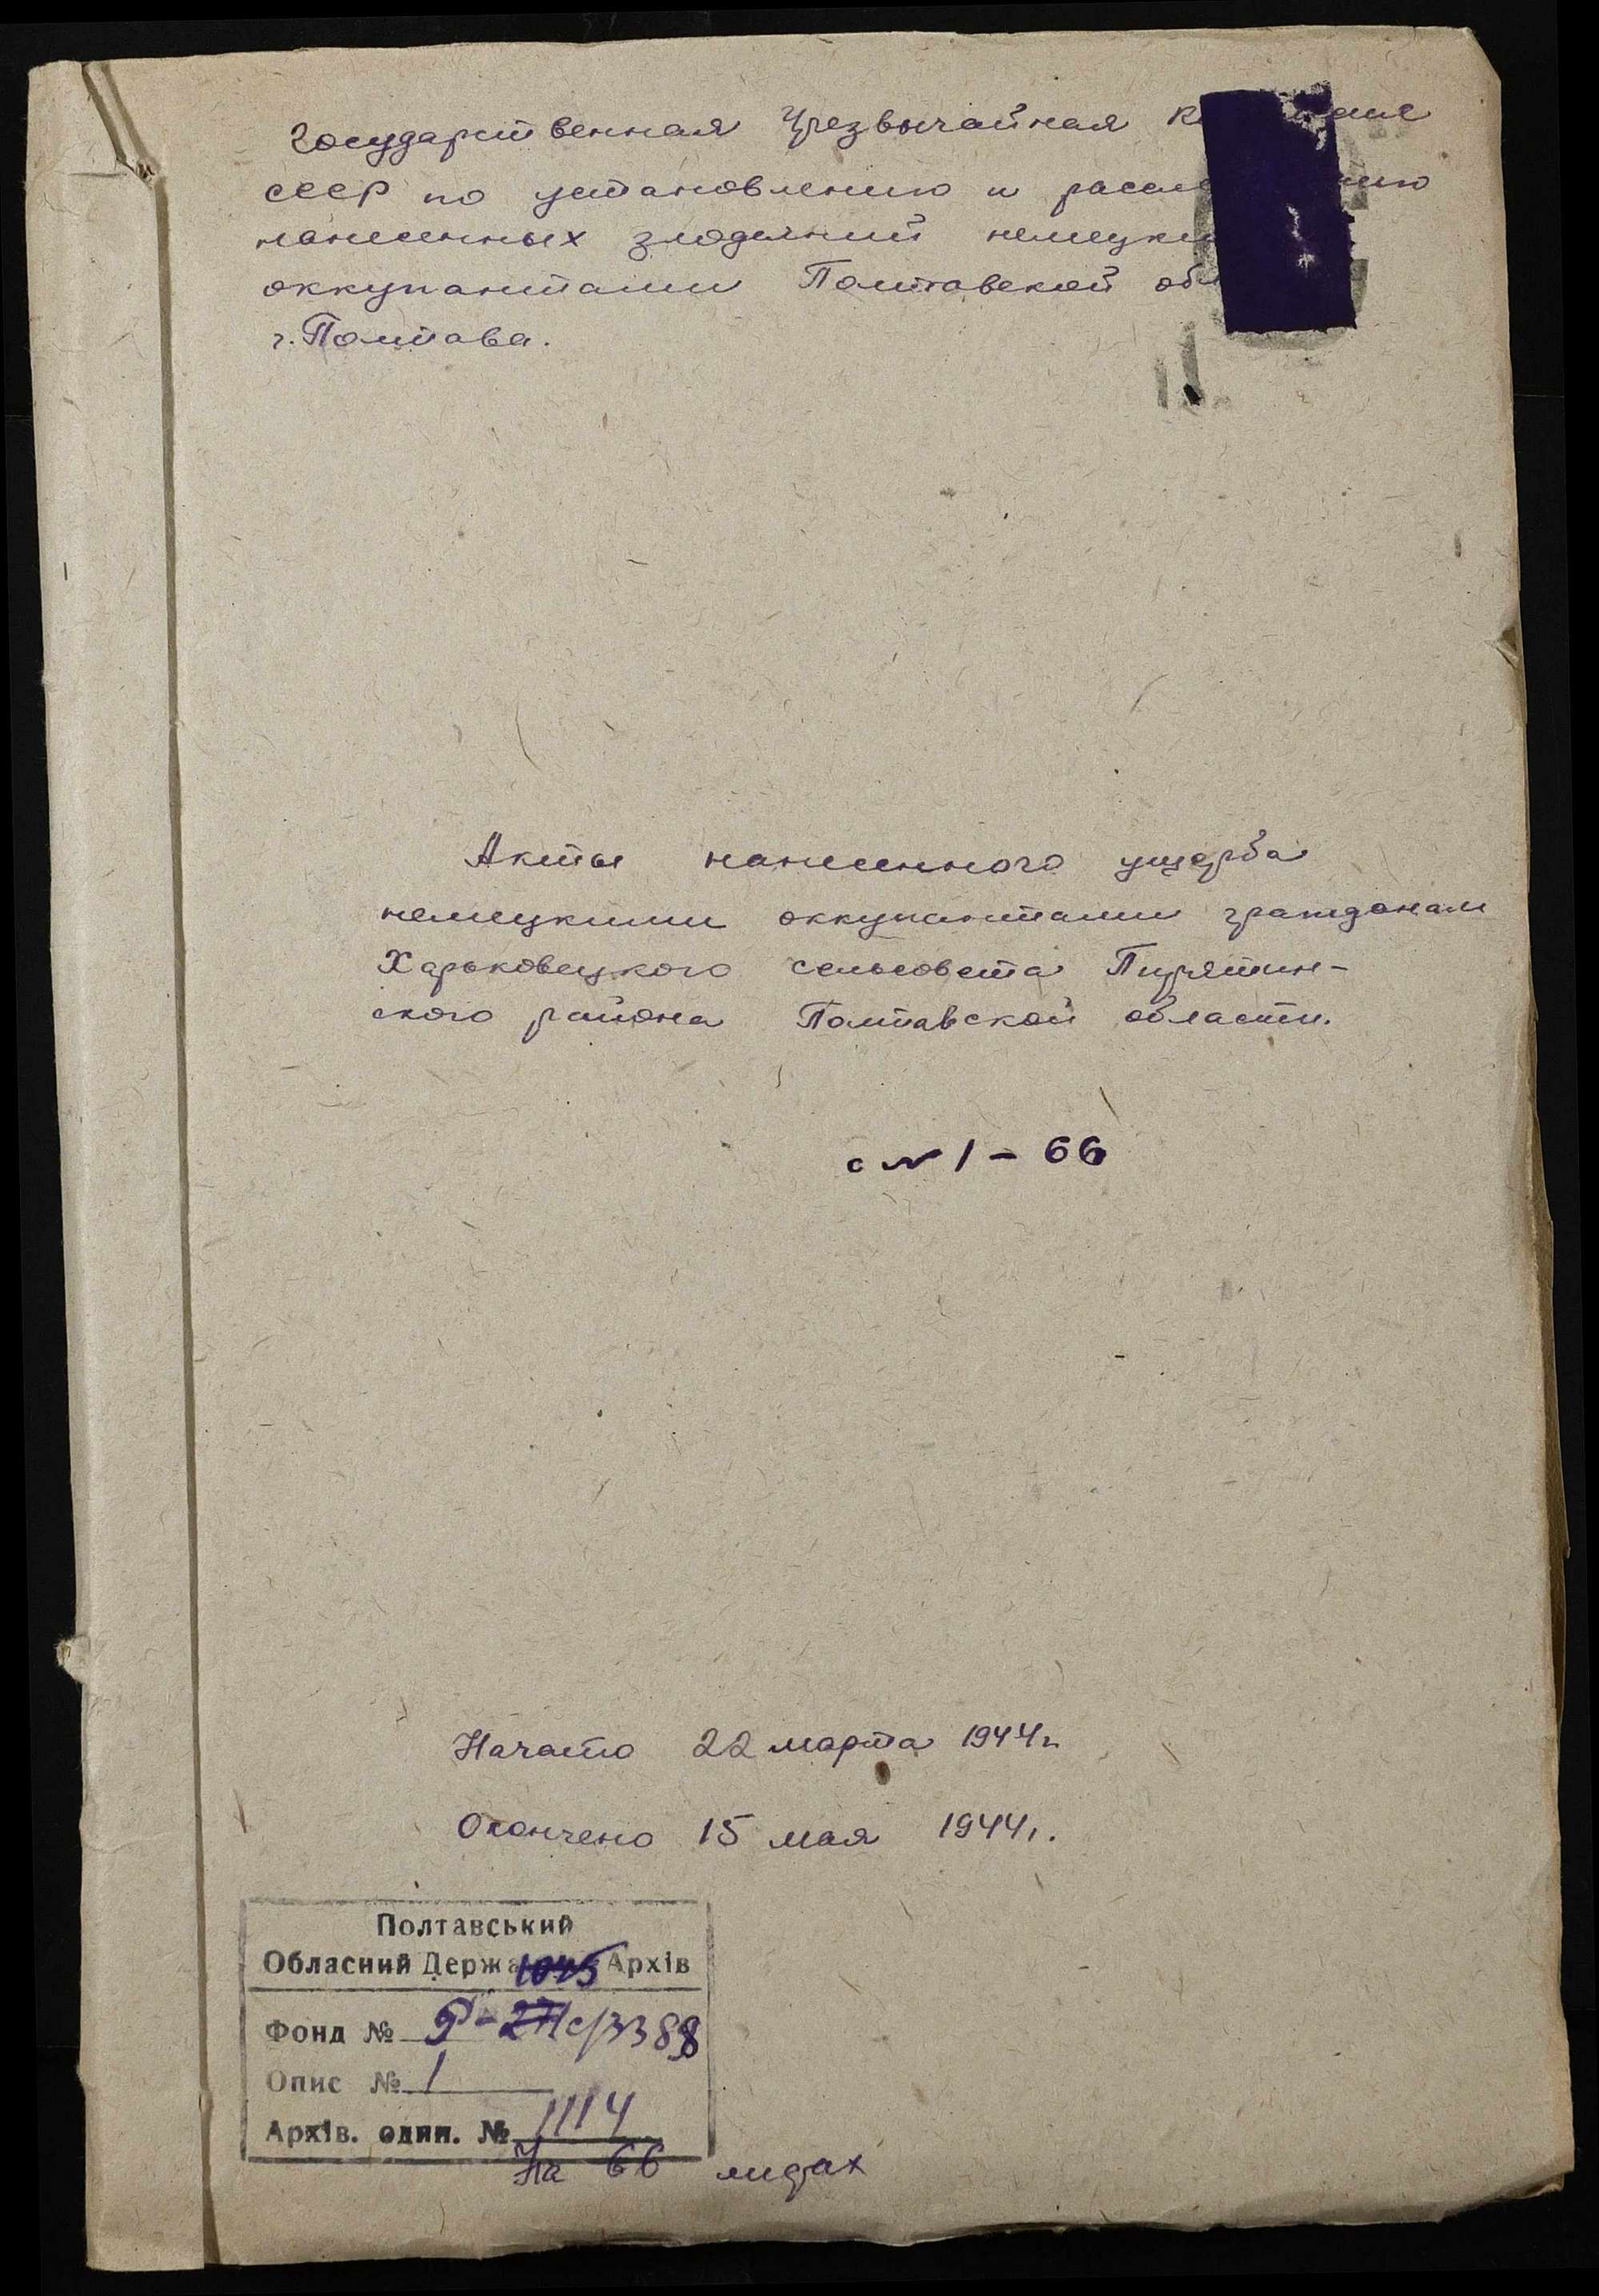 Государственная Чрезвычайная
СССР по установлению и
нанесенных злодеяний
оккупантами Полтавской
г. Полтава.
Акты нанесенного ущерба
немецкими оккупантами гражданам
Харьковецкого сельсовета Пирятин-
ского района Полтавской области.
с № 1 – 66
Начато 22 марта 1944г.
Окончено 15 мая 1944г.
Полтавський
Обласний Архів
1045
Фонд № Р-
Опис № 1
Архів. один. № 1114
На 66 лицах